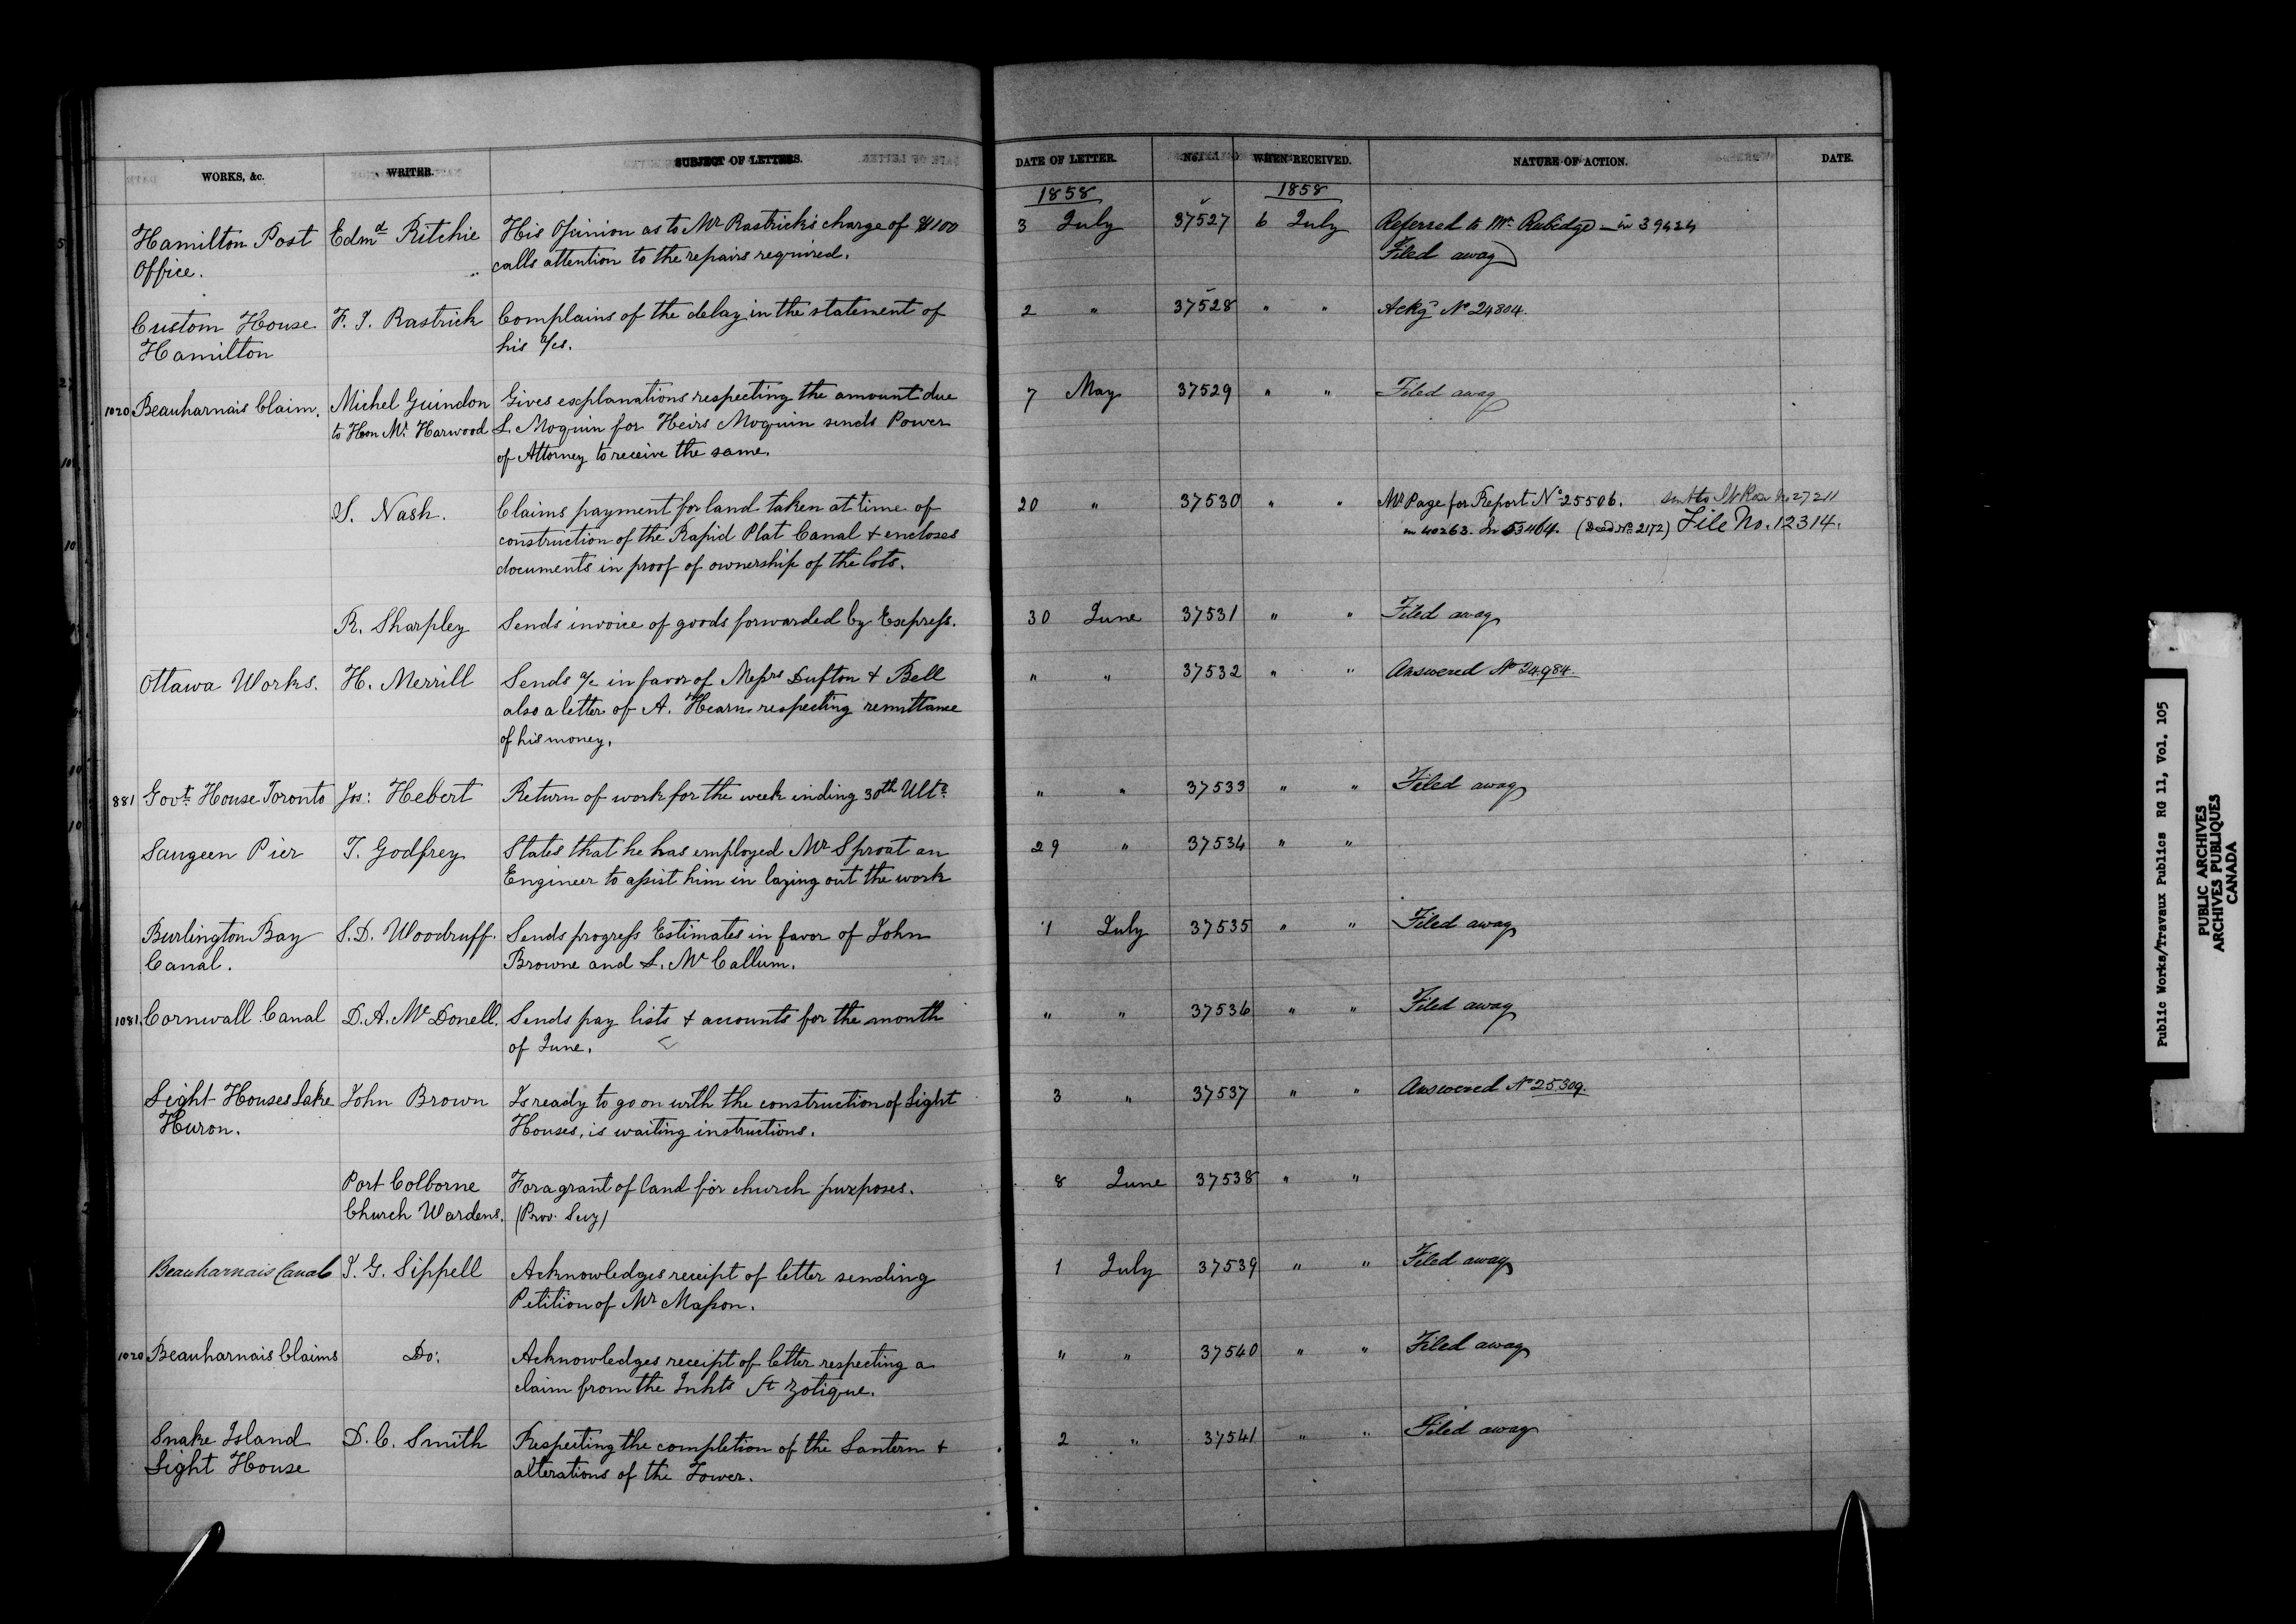 WORKS, &c. WRITER. SUBJECT OF LETTERS. DATE OF LETTER. No. WHEN RECEIVED. NATURE OF ACTION. DATE.
1858 1858
Hamilton Post Edmd Ritchie His Opinion as to Mr Rastrick's charge of $100 3 July 37527 6 July Referred to Mr Rubidge — in 39424
Office. calls attention to the repairs required. Filed away
Custom House F. J. Rastrick Complains of the delay in the statement of 2 " 37528 " " Ackg No 24804.
Hamilton his a/cs.
1020 Beauharnais Claim. Michel Guindon Gives explanations respecting the amount due 7 May 37529 " " Filed away
to Hon Mr. Harwood L. Moquin for Heirs Moquin sends Power
of Attorney to receive the same.
S. Nash. Claims payment for land taken at time of 20 " 37530 " " Mr Page for Report No 25506. sent to No 27211
construction of the Rapid Plat Canal + encloses in 40263. In 53464. (Deed No 2172) File No. 12314.
documents in proof of ownership of the lots.
R. Sharpley Sends invoice of goods forwarded by Express. 30 June 37531 " " Filed away
Ottawa Works. H. Merrill Sends a/c in favor of Messrs Dufton + Bell " " 37532 " " Answered No 24984.
also a letter of A. Hearn respecting remittance
of his money.
881 Govt. House Toronto Jos: Hebert Return of work for the week ending 30th Ulto. " " 37533 " " Filed away
Saugeen Pier T. Godfrey States that he has employed Mr Sproat an 29 " 37534 " "
Engineer to assist him in laying out the work
Burlington Bay S. D. Woodruff. Sends progress Estimates in favor of John 1 July 37535 " " Filed away
Canal. Browne and L. McCallum.
1081. Cornwall Canal D. A. McDonell. Sends pay lists + accounts for the month " " 37536 " " Filed away
of June.
Light Houses Lake John Brown Is ready to go on with the construction of Light 3 " 37537 " " Answered No 25309.
Huron. Houses, is waiting instructions.
Port Colborne For a grant of land for church purposes. 8 June 37538 " "
Church Wardens. (Prov. Secy)
Beauharnais Canal J. G. Sippell Acknowledges receipt of letter sending 1 July 37539 " " Filed away
Petition of Mr Masson.
1020 Beauharnais Claims Do: Acknowledges receipt of letter respecting a " " 37540 " " Filed away
claim from the Inhts St Zotique.
Snake Island D. C. Smith Respecting the completion of the Lantern + 2 " 37541 " " Filed away
Light House alterations of the Tower.
Public Works/Travaux Publics RG 11, Vol. 105
PUBLIC ARCHIVES
ARCHIVES PUBLIQUES
CANADA